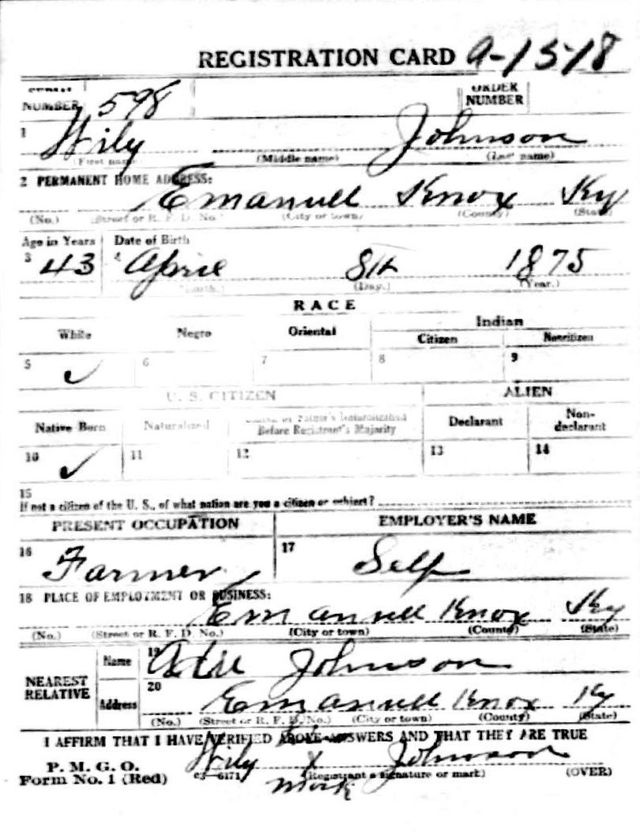 REGISTRATION CARD 9-15-18
SERIAL NUMBER 598 ORDER NUMBER
1 Wily Johnson
(First name) (Middle name) (Last name)
2 PERMANENT HOME ADDRESS:
Emanuell Knox Ky
(No.) (Street or R. F. D. No.) (City or town) (County) (State)
Age in Years Date of Birth
3 43 4 April 8th 1875
(Month.) (Day.) (Year.)
RACE
White Negro Oriental Indian
Citizen Noncitizen
5 ✓ 6 7 8 9
U. S. CITIZEN ALIEN
Native Born Naturalized Citizen by Father's Naturalization Before Registrant's Majority Declarant Non-declarant
10 ✓ 11 12 13 14
15
If not a citizen of the U. S., of what nation are you a citizen or subject?
PRESENT OCCUPATION EMPLOYER'S NAME
16 Farmer 17 Self
18 PLACE OF EMPLOYMENT OR BUSINESS:
Emanuell Knox Ky
(No.) (Street or R. F. D. No.) (City or town) (County) (State)
NEAREST RELATIVE Name 19 Johnson
Address 20 Emanuell Knox Ky
(No.) (Street or R. F. D. No.) (City or town) (County) (State)
I AFFIRM THAT I HAVE VERIFIED ABOVE ANSWERS AND THAT THEY ARE TRUE
P. M. G. O.
Form No. 1 (Red) Wily his x mark Johnson
(Registrant's signature or mark) (OVER)